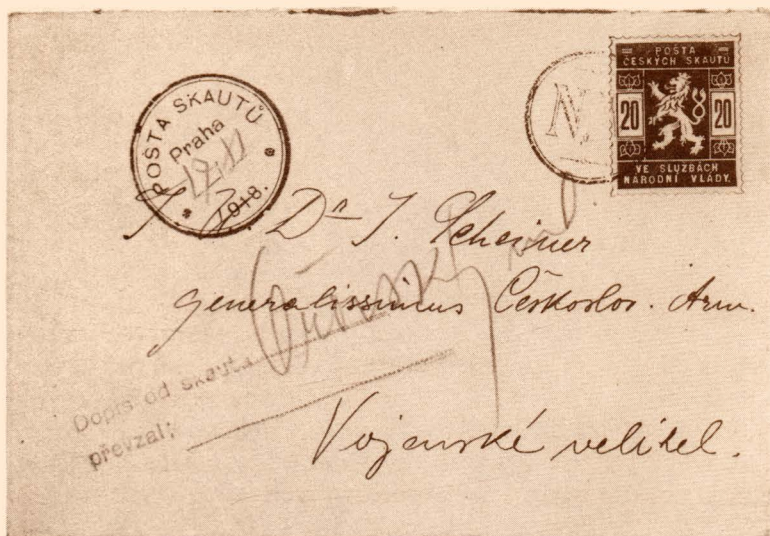 POŠTA SKAUTŮ
Praha
1918.
N.
POŠTA
ČESKÝCH SKAUTŮ
20 20
VE SLUŽBÁCH
NÁRODNÍ VLÁDY.
Dr J. Scheiner
generalissimus Českoslov. Arm.
Dopis od skauta
převzal:
Vojenské velitel.